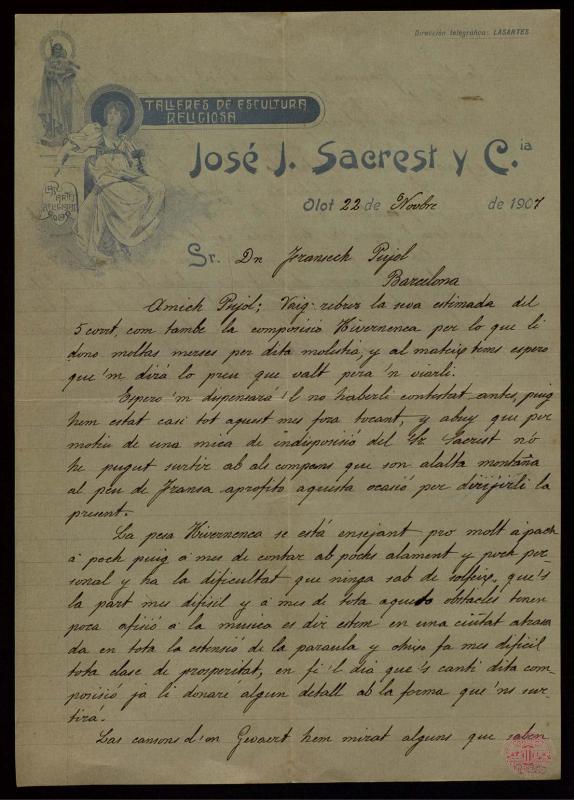 Dirección telegráfica: LASARTES
TALLERES DE ESCULTURA
RELIGIOSA
José J. Sacrest y C.ia
LAS ARTES
RELIGIOSAS
OLOT
Olot 22 de Novbre de 1907
Sr. Dn Fransech Pujol
Barcelona
Amich Pujol; Vaig rebrer la seva estimada del
5 corrt, com tambe la composisio Hivernenca per lo que li
dono moltas merses per dita molestia, y al mateix tems espero
que 'm dirá lo preu que valt pera 'n viarli.
Espero 'm dispensará 'l no haberli contestat antes, puig
hem estat casi tot aquest mes fora tocant, y abuy que per
motiu de una mica de indisposisió del Sr. Sacrest no
he pugut surtir ab als companys que son alalta montaña
al peu de Fransa aprofito aquesta ocasió per dirijirli la
present.
La pesa Hivernenca se está ensejant pro molt á poch
á poch puig á mes de contar ab pochs alament y poch per-
sonal y ha la dificultat que ninga sab de solfeix, que's
la part mes difisil y á mes de tota aquets obstacles tenen
poca afisió á la musica es dir estem en una ciutat atrasa
da en tota la estensió de la paraula y fa mes dificil
tota clase de prosperitat, en fi 'l dia que 's canti dita com-
posisió já li donare algun detall ab la forma que 'ns sur-
tirá.
Las cansons d'en Gevaert hem mirat alguns que saben